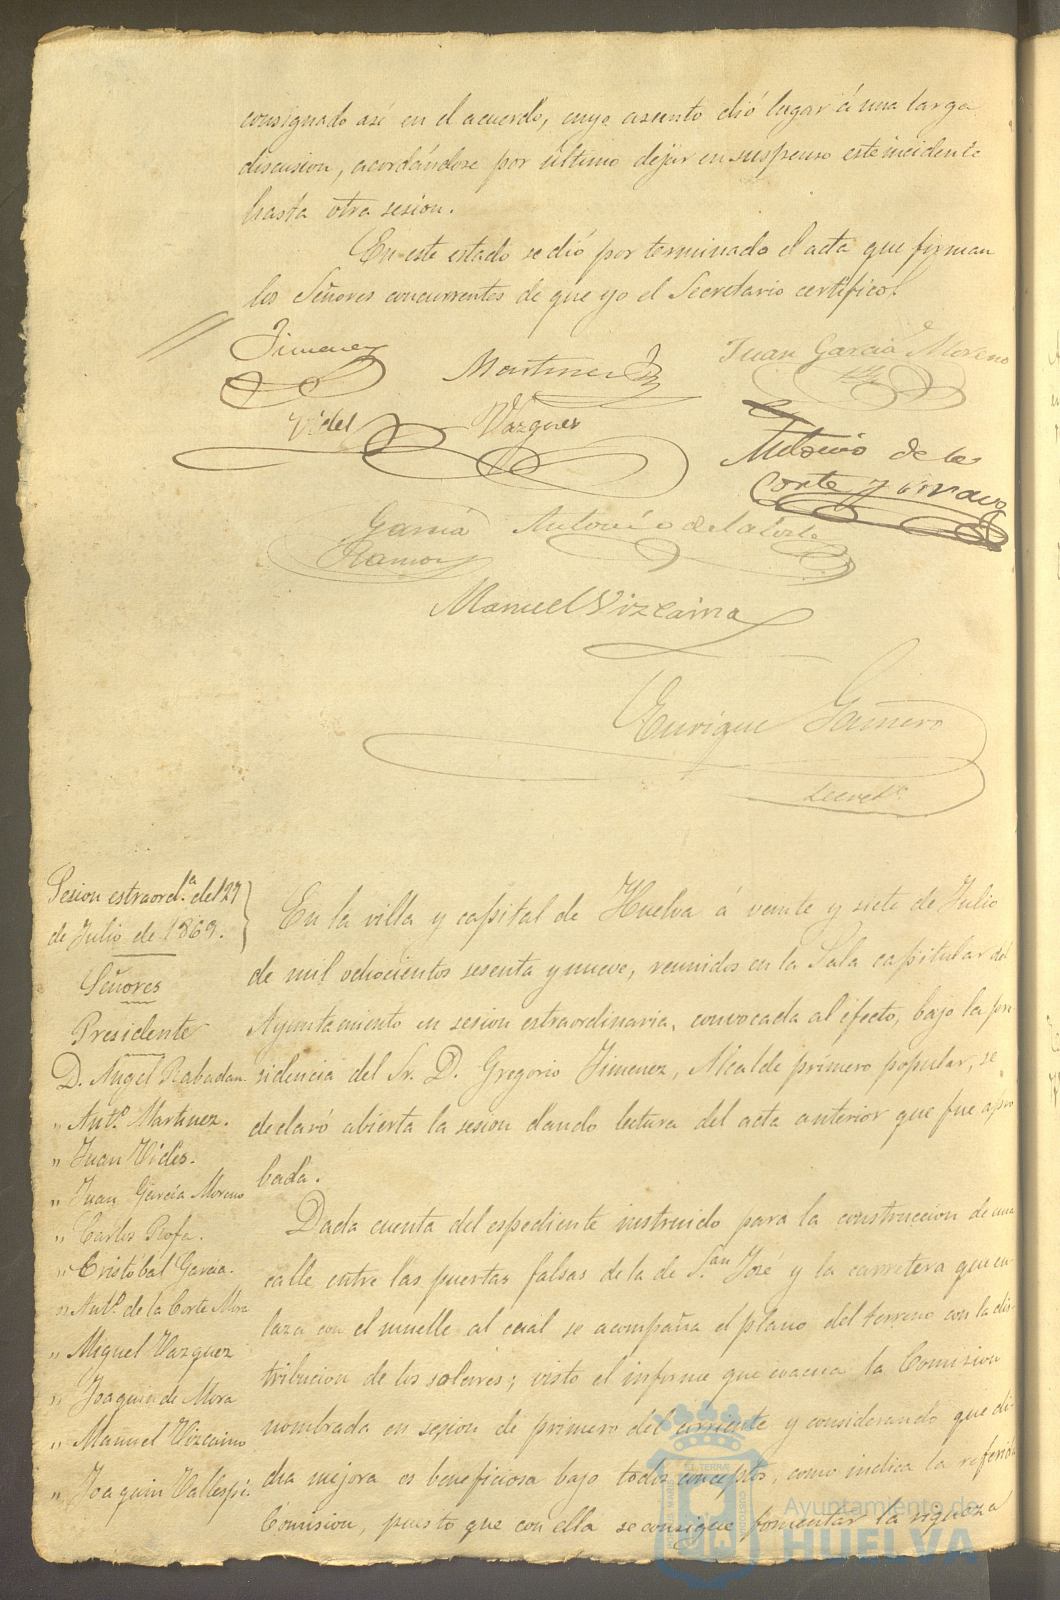 consignado así en el acuerdo, cuyo asunto dió lugar á una larga
discusion, acordándose por último dejar en suspenso este incidente
hasta otra sesion.
En este estado se dió por terminado el acta que firman
los Señores concurrentes de que yo el Secretario certifico.
Jimenez
Martinez
Juan García Moreno
Videl
Vazquez
Antonio de la
Corte y
García
Ramon
Antonio de la Corte
Manuel Vizcaino
Enrique Gamero
Secret.º
Sesion estraord.ª del 27
de Julio de 1869.
Señores
Presidente
D. Angel Rabadan
" Ant.º Martinez.
" Juan Vides.
" Juan García Moreno
" Carlos Rofa.
" Cristóbal García.
" Ant.º de la Corte Mra
" Miguel Vazquez
" Joaquin de Mora
" Manuel Vizcaino
" Joaquin Vallespi.
En la villa y capital de Huelva á veinte y siete de Julio
de mil ochocientos sesenta y nueve, reunidos en la Sala capitular del
Ayuntamiento en sesion estraordinaria, convocada al efecto, bajo la pre
sidencia del Sr. D. Gregorio Jimenez, Alcalde primero popular, se
declaró abierta la sesion dando lectura del acta anterior que fue apro
bada.
Dada cuenta del espediente instruido para la construccion de una
calle entre las puertas falsas de la de S.an José y la carretera que en
laza con el muelle al cual se acompaña el plano del terreno con la dis
tribucion de los solares; visto el informe que evacua la Comision
nombrada en sesion de primero del corriente y considerando que di
cha mejora es beneficiosa bajo todos conceptos, como indica la referida
Comision, puesto que con ella se consigue fomentar la riqueza
Ayuntamiento de
HUELVA